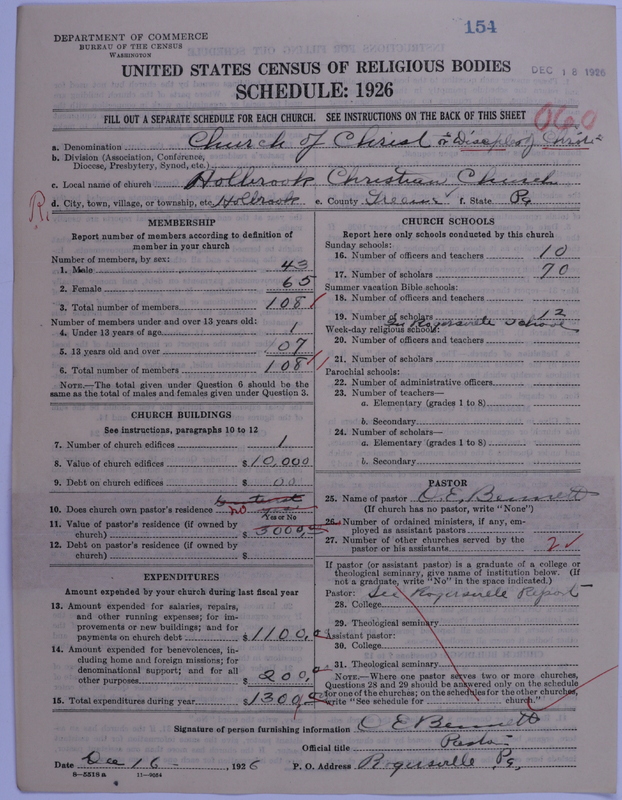 154
DEPARTMENT OF COMMERCE
BUREAU OF THE CENSUS
WASHINGTON
UNITED STATES CENSUS OF RELIGIOUS BODIES
DEC 18 1926
SCHEDULE: 1926
FILL OUT A SEPARATE SCHEDULE FOR EACH CHURCH. SEE INSTRUCTIONS ON THE BACK OF THIS SHEET
060
a. Denomination Church of Christ or Disciples of Christ
b. Division (Association, Conference, Diocese, Presbytery, Synod, etc.)
c. Local name of church Holbrook Christian Church
R.
d. City, town, village, or township, etc. Holbrook e. County Greene f. State Pa
MEMBERSHIP
Report number of members according to definition of member in your church
Number of members, by sex:
1. Male 43
2. Female 65
3. Total number of members 108
Number of members under and over 13 years old:
4. Under 13 years of age 1
5. 13 years old and over 107
6. Total number of members 108
NOTE.—The total given under Question 6 should be the same as the total of males and females given under Question 3.
CHURCH BUILDINGS
See instructions, paragraphs 10 to 12
7. Number of church edifices 1
8. Value of church edifices $ 10,000
9. Debt on church edifices $ 00
10. Does church own pastor's residence no
Yes or No
11. Value of pastor's residence (if owned by church) $ 3000,00
12. Debt on pastor's residence (if owned by church) $
EXPENDITURES
Amount expended by your church during last fiscal year
13. Amount expended for salaries, repairs, and other running expenses; for improvements or new buildings; and for payments on church debt $ 1100,00
14. Amount expended for benevolences, including home and foreign missions; for denominational support; and for all other purposes $ 200,00
15. Total expenditures during year $ 1300,00
CHURCH SCHOOLS
Report here only schools conducted by this church
Sunday schools:
16. Number of officers and teachers 10
17. Number of scholars 70
Summer vacation Bible schools:
18. Number of officers and teachers
19. Number of scholars 12
In Rogersville School
Week-day religious schools:
20. Number of officers and teachers
21. Number of scholars
Parochial schools:
22. Number of administrative officers
23. Number of teachers—
a. Elementary (grades 1 to 8)
b. Secondary
24. Number of scholars—
a. Elementary (grades 1 to 8)
b. Secondary
PASTOR
25. Name of pastor O. E. Bennett
(If church has no pastor, write "None")
26. Number of ordained ministers, if any, employed as assistant pastors
27. Number of other churches served by the pastor or his assistants 2
If pastor (or assistant pastor) is a graduate of a college or theological seminary, give name of institution below. (If not a graduate, write "No" in the space indicated.)
Pastor: See Rogersville Report
28. College
29. Theological seminary
Assistant pastor:
30. College
31. Theological seminary
NOTE.—Where one pastor serves two or more churches, Questions 28 and 29 should be answered only on the schedule for one of the churches; on the schedules for the other churches, write "See schedule for church."
Signature of person furnishing information O E Bennett
Official title Pastor
Date Dec 16 - , 1926 P. O. Address Rogersville Pa,
8—5518a 11—9024